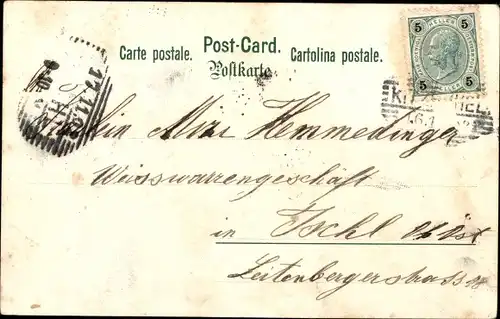 Carte postale. Post-Card. Cartolina postale.
Postkarte
5 HELLER 5
5 5
17.11
Fräulein Mizi Hemmedinger
Weisswarrengeschäft
in Ischl
Leitenbergerstrass